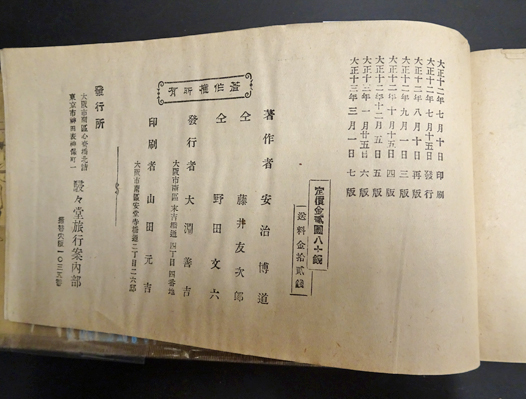 大正十二年七月十日印刷
大正十二年七月十五日發行
大正十二年八月十日再版
大正十二年九月一日三版
大正十二年十月十五日四版
大正十二年十二月五日五版
大正十三年一月廿五日六版
大正十三年三月一日七版
定價金貳圓八十錢
送料金拾貳錢
著作者 安治博道
仝 藤井友次郎
仝 野田文六
發行者 大淵善吉
大阪市南區末吉橋通四丁目四番地
印刷者 山田元吉
大阪市南區安堂寺橋通二丁目二六邸
著作權所有
發行所
大阪市南區心斎橋北詰
東京市神田表神保町一
駸々堂旅行案內部